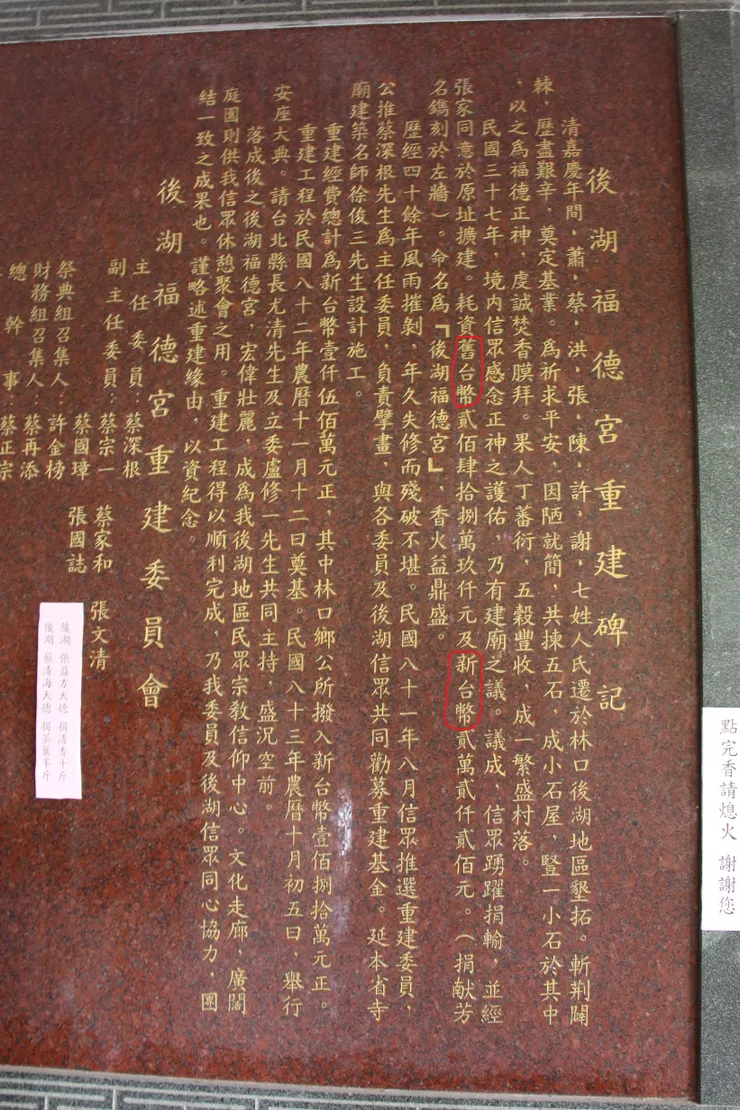 後湖福德宮重建碑記
清嘉慶年間，蕭，蔡，洪，張，陳，許，謝，七姓人氏遷於林口後湖地區墾拓。斬荆闢
棘，歷盡艱辛，奠定基業。為祈求平安，因陋就簡，共揀五石，成小石屋，豎一小石於其中
，以之為福德正神，虔誠焚香膜拜。果人丁蕃衍，五穀豐收，成一繁盛村落。
民國三十七年，境內信眾感念正神之護佑，乃有建廟之議。議成，信眾踴躍捐輸，並經
張家同意於原址擴建。耗資舊台幣貳佰肆拾捌萬玖仟元及新台幣貳萬貳仟貳佰元。（捐献芳
名鐫刻於左牆）。命名為『後湖福德宮』，香火益鼎盛。
歷經四十餘年風雨摧剝，年久失修而殘破不堪。民國八十一年八月信眾推選重建委員，
公推蔡深根先生為主任委員，負責擘畫，與各委員及後湖信眾共同勸募重建基金。延本省寺
廟建築名師徐俊三先生設計施工。
重建經費總計為新台幣壹仟伍佰萬元正，其中林口鄉公所撥入新台幣壹佰捌拾萬元正。
重建工程於民國八十二年農曆十一月十二日奠基。民國八十三年農曆十月初五日，舉行
安座大典。請台北縣長尤清先生及立委盧修一先生共同主持，盛況空前。
落成後之後湖福德宮，宏偉壯麗，成為我後湖地區民眾宗教信仰中心。文化走廊，廣闊
庭園則供我信眾休憩聚會之用。重建工程得以順利完成，乃我委員及後湖信眾同心協力，團
結一致之成果也。謹略述重建緣由，以資紀念。
後湖福德宮重建委員會
主任委員：蔡深根
副主任委員：蔡宗一 蔡家和 張文清
蔡國璋 張國誌
祭典組召集人：許金榜
財務組召集人：蔡再添
總幹事：蔡正宗
後湖 張益方大德 捐清香十斤
後湖 蔡清海大德 捐茶葉半斤
點完香請熄火 謝謝您